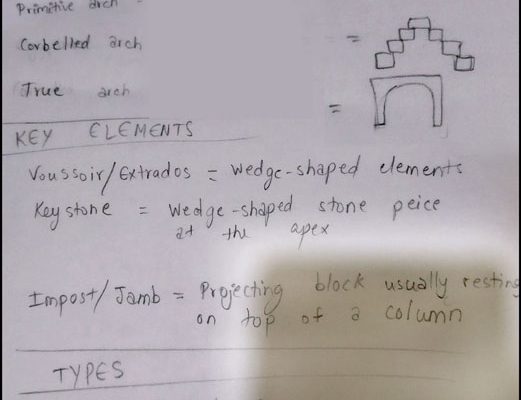 Primitive arch -
Corbelled arch =
True arch =
KEY ELEMENTS
Voussoir/Extrados = Wedge-shaped elements
Keystone = Wedge-shaped stone peice
at the apex
Impost/Jamb = Projecting block usually resting
on top of a column
TYPES